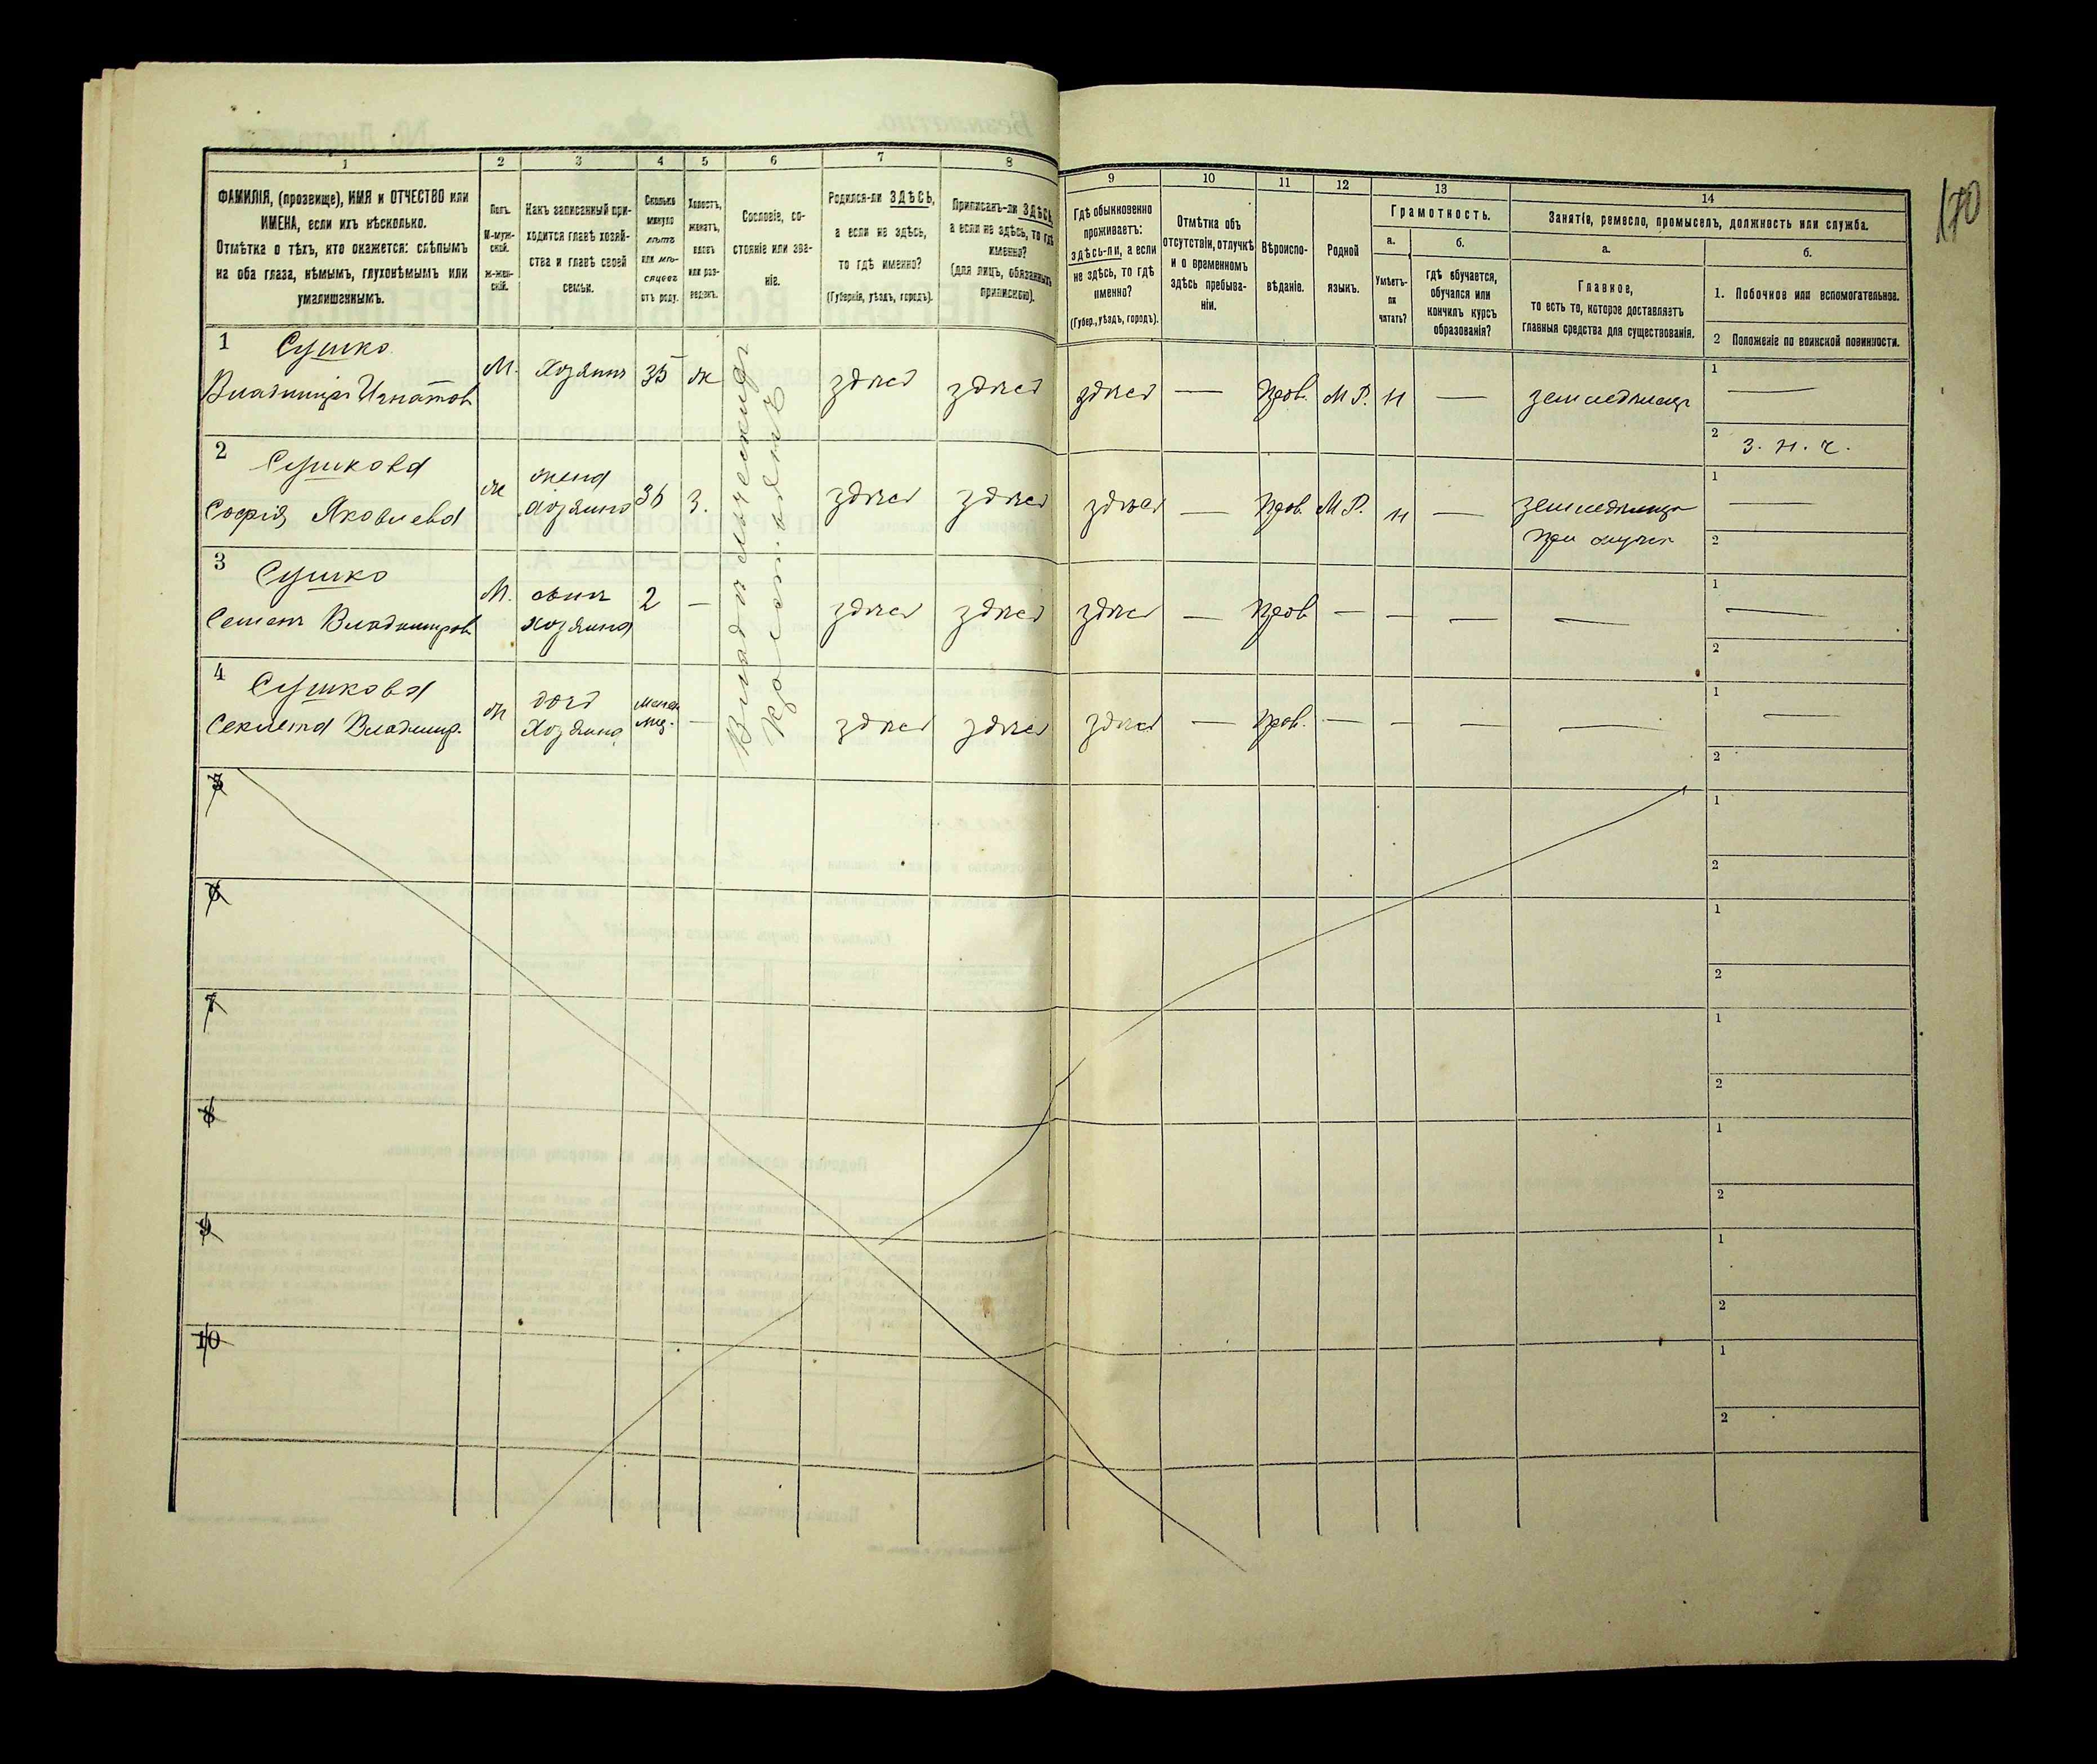 1
2
3
4
5
6
7
8
ФАМИЛІЯ, (прозвище), ИМЯ и ОТЧЕСТВО или
ИМЕНА, если ихъ нѣсколько.
Отмѣтка о тѣхъ, кто окажется: слѣпымъ
на оба глаза, нѣмымъ, глухонѣмымъ или
умалишеннымъ.
Полъ.
М-муж-
ской.
Ж-жен-
скій.
Какъ записанный при-
ходится главѣ хозяй-
ства и главѣ своей
семьи.
Сколько
минуло
лѣтъ
или мѣ-
сяцевъ
отъ роду.
Холостъ,
женатъ,
вдовъ
или раз-
веденъ.
Сословіе, со-
стояніе или зва-
ніе.
Родился-ли ЗДѢСЬ,
а если не здѣсь,
то гдѣ именно?
(Губернія, уѣздъ, городъ).
Приписанъ-ли ЗДѢСЬ,
а если не здѣсь, то гдѣ
именно?
(для лицъ, обязанныхъ
припискою).
1 Сушко
Владимиръ Игнатов
М.
Хозяинъ
35
ж
здесь
здесь
2 Сушкова
Софія Яковлева
ж
жена
хозяина
36
З.
здесь
здесь
3 Сушко
Семенъ Владимиров
М.
сынъ
хозяина
2
—
здесь
здесь
4 Сушкова
Владимир.
ж
дочь
Хозяина
—
здесь
здесь
5
6
7
8
9
10
170
9
10
11
12
13
14
Гдѣ обыкновенно
проживаетъ:
здѣсь-ли, а если
не здѣсь, то гдѣ
именно?
(Губер., уѣздъ, городъ).
Отмѣтка объ
отсутствіи, отлучкѣ
и о временномъ
здѣсь пребыва-
ніи.
Вѣроиспо-
вѣданіе.
Родной
языкъ.
Грамотность.
а.
Умѣетъ-
ли
читать?
б.
гдѣ обучается,
обучался или
кончилъ курсъ
образованія?
Занятіе, ремесло, промыселъ, должность или служба.
а.
Главное,
то есть то, которое доставляетъ
главныя средства для существованія.
б.
1. Побочное или вспомогательное.
2 Положеніе по воинской повинности.
здесь
—
Прав.
М Р.
н
—
земледелецъ
1 —
2 З. н. ч.
здесь
—
Прав.
М Р.
н
—
при мужѣ
1 —
2
здесь
—
Прав.
—
—
—
—
1 —
2
здесь
—
Прав.
—
—
—
—
1 —
2
1
2
1
2
1
2
1
2
1
2
1
2